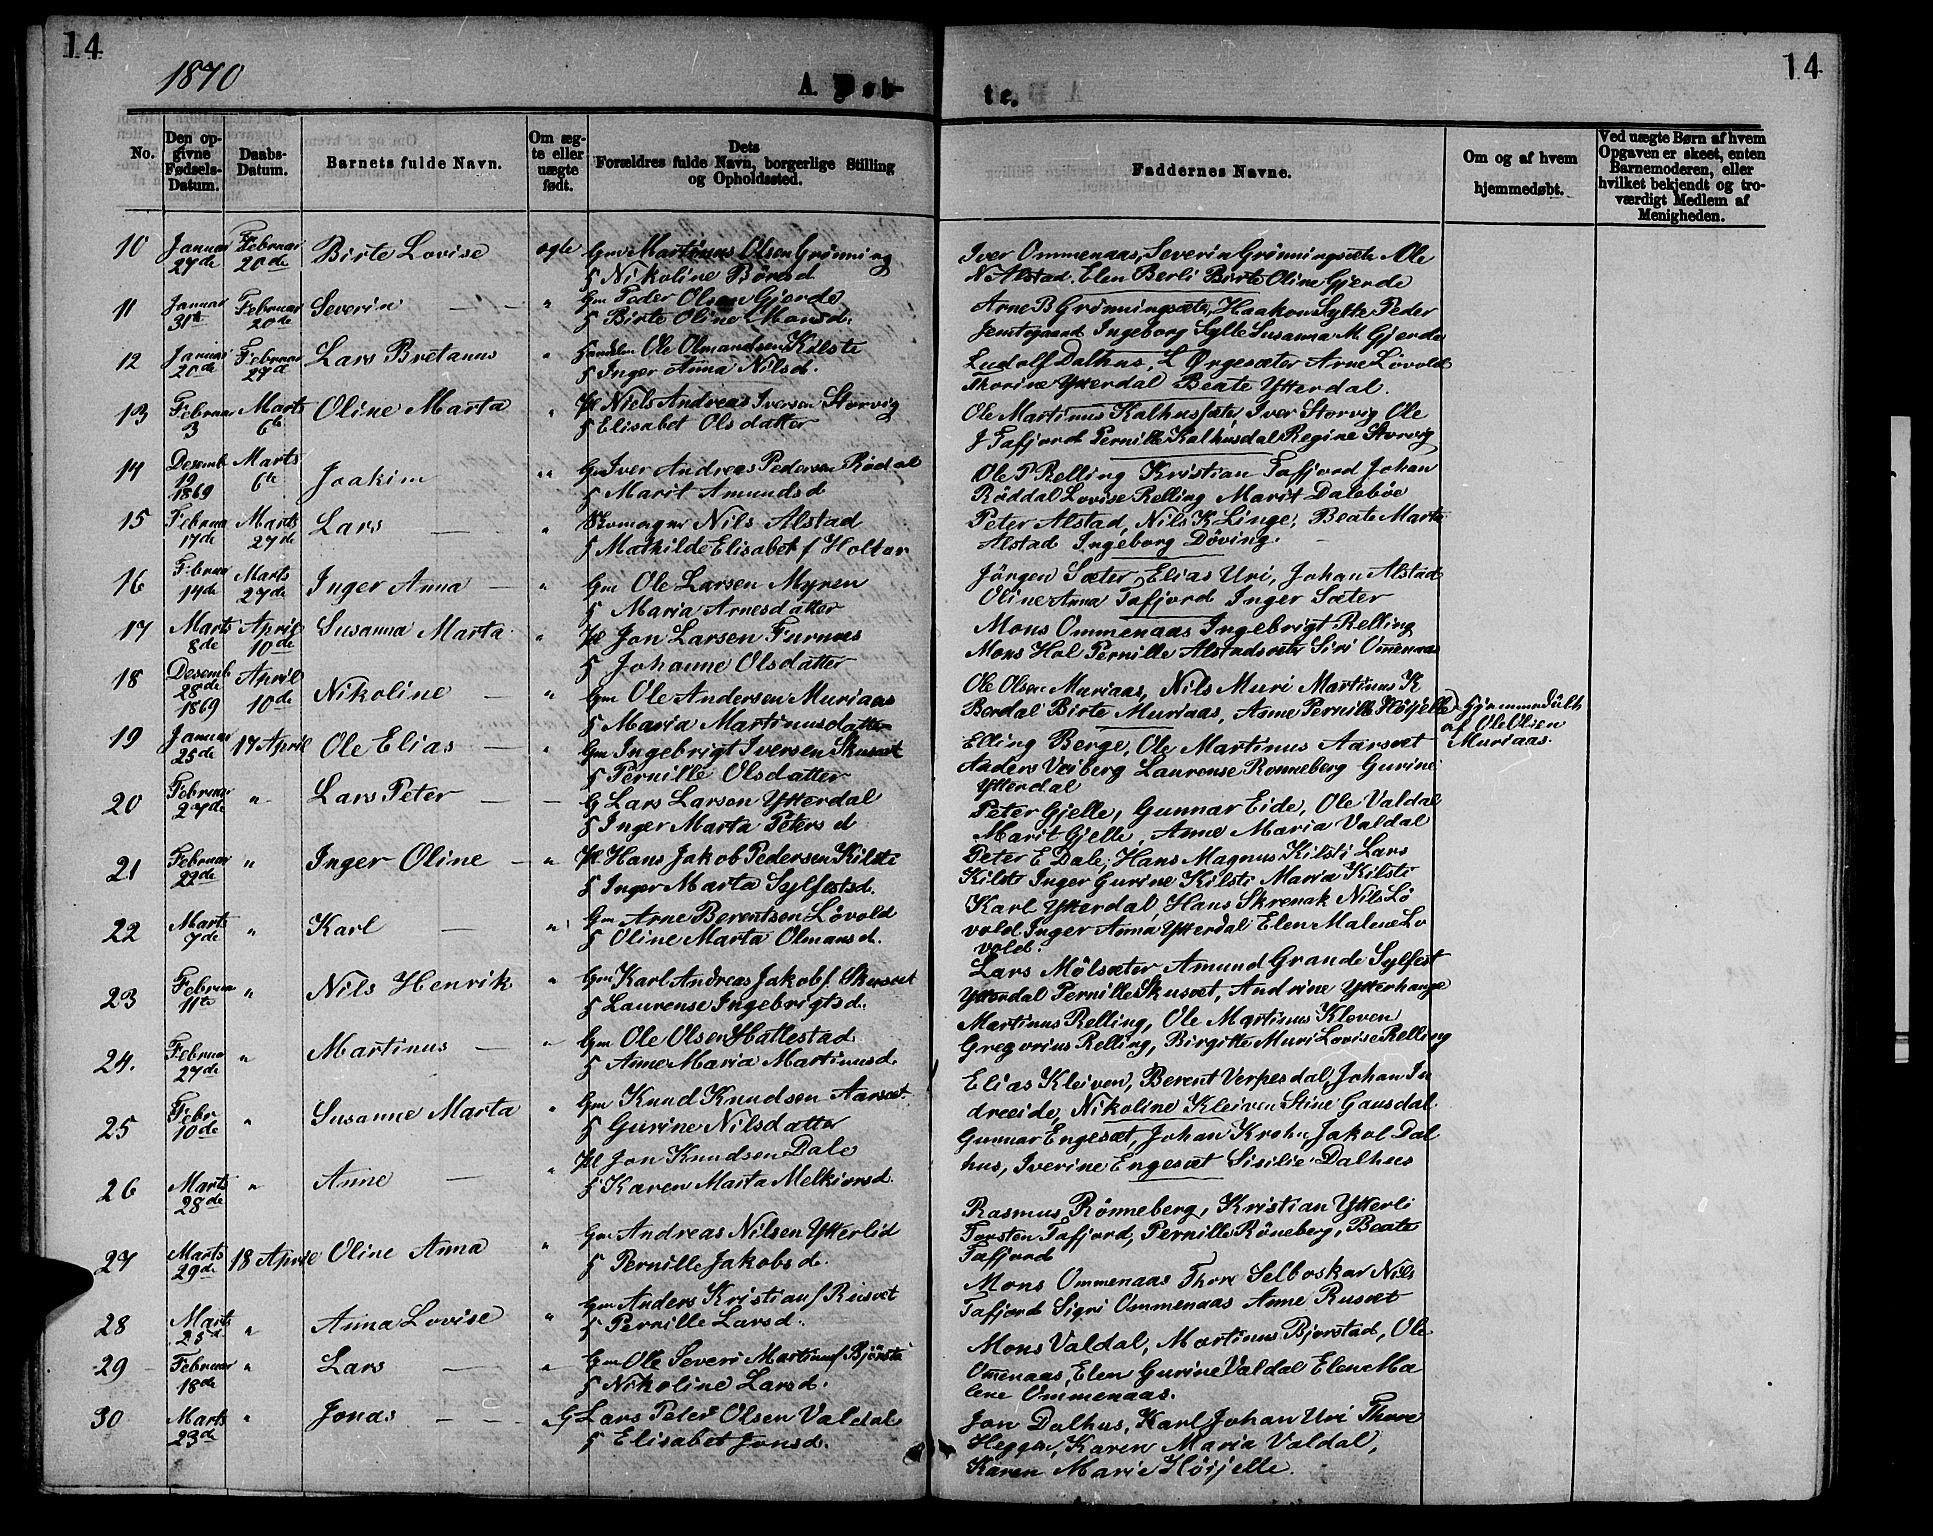 14
14
1870
A. Døb-
te.
No.
Den op-
givne
Fødsels-
Datum.
Daabs-
Datum.
Barnets fulde Navn.
Om æg-
te eller
uægte
født.
Dets
Forældres fulde Navn, borgerlige Stilling
og Opholdssted.
Faddernes Navne.
Om og af hvem
hjemmedøbt.
Ved uægte Børn af hvem
Opgaven er skeet, enten
Barnemoderen, eller
hvilket bekjendt og tro-
værdigt Medlem af
Menigheden.
10 Januar 27de Februar 20de Birte Lovise ægte Gm Martinus Olsen Grønning
Nikoline Börsd
Iver Ommenaas, Severin Grønningsæte Ole
N Alstad. Elen Berli Birte Oline Gjerde
11 Januar 31te Februar 20de Severin " Gm Peder Olsen Gjerde
Birte Oline Monsd.
Arne B Grønningsæte, Haakon Sylte Peder
Jemtegaard Ingeborg Sylte Susanna M Gjerde
12 Januar 20de Februar 27de Lars Bretanus " Ole Olmandsen Kilsti
Inger Anna Nilsd.
Ludolf Dalhus, L Ørgesæter Arne Lövold
Thorine Ytterdal Beate Ytterdal.
13 Februar 3 Marts 6te Oline Marta " Pl Niels Andreas Iversen Storvig
Elisabet Olsdatter
Ole Martinus Kalhussæte, Iver Storvig Ole
J Tafjord Pernille Kalhusdal Regine Storvig
14 Desemb 19 1869 Marts 6te Joakim " Gm Iver Andreas Pedersen Rødal
Marit Amundsd
Ole P Relling Kristian Tafjord Johan
Röddal Lovise Relling Marit Dalebøe
15 Februar 17de Marts 27de Lars " Skomager Nils Alstad
Mathilde Elisabet f Holter
Peter Alstad, Nils K Linge, Beate Marta
Alstad Ingeborg Döving.
16 Februar 14de Marts 27de Inger Anna " Gm Ole Larsen Myren
Maria Arnesdatter
Jörgen Sæter, Elias Uri, Johan Alstad
Oline Anna Tafjord Inger Sæter
17 Marts 8de April 10de Susanna Marta " Pl Jon Larsen Furnes
Johanne Olsdatter
Mons Ommenaas Ingebrigt Relling
Mons Hol Pernille Alstadsæte Siri Omenaas
18 Desemb 28de 1869 April 10de Nikoline " Gm Ole Andersen Muriaas
Maria Martinusdatter
Ole Olsen Muriaas, Nils Muri Martinus K
Berdal Birte Muriaas, Anne Pernille Höijelle
Hjemmedöbt
af Ole Olsen
Muriaas
19 Januar 25de 17 April Ole Elias " Gm Ingebrigt Iversen Skusæt
Pernille Olsdatter
Elling Berge, Ole Martinus Aarsæt
Anders Veiberg Laurense Ronneberg Gurine
Ytterdal
20 Februar 27de " Lars Peter G Lars Larsen Ytterdal
Inger Marta Peters d
Peter Gjelle, Gunnar Eide, Ole Valdal
Marit Gjelle, Anne Maria Valdal
21 Februar 22de " Inger Oline " Pl Hans Jakob Pedersen Kilsti
Inger Marta Sylfestsd.
Peter E Dale, Hans Magnus Kilsti Lars
Kilsti Inger Gurine Kilsti Maria Kilsti
22 Marts 7de " Karl " Gm Arne Berentsen Lövold
Oline Marta Olmansd.
Karl Ytterdal, Hans Skrenak Nils Lö
vold Inger Anna Ytterdal Elen Malene Lo
vold.
23 Februar 11te " Nils Henrik " Gm Karl Andreas Jakobs. Skusæt
Laurense Ingebrigtsd.
Lars Mölsæter Amund Grande Sylfest
Ytterdal Pernille Skusæt, Andrine Ytterhauge
24. Februar 27de " Martinus " Gm Ole Olsen Hattestad
Anne Maria Martinusd.
Martinus Relling, Ole Martinus Kleven
Gregorius Relling, Birgitte Muri Lovise Relling
25 Febr 10de " Susanne Marta " Gm Knud Knudsen Aarsæt
Gurine Nilsdatter
Elias Kleiven, Berent Verpesdal, Johan In
dreeide, Nikoline Kleiven Stine Gausdal.
26 Marts 28de " Anne " Pl Jon Knudsen Dale
Karen Marta Melkiorsd.
Gunnar Engesæt, Johan Krohn Jakob Dal
hus, Iverine Engesæt Sisilie Dalhus
27 Marts 29de 18 April Oline Anna " Gm Andreas Nilsen Ytterlid
Pernille Jakobsd.
Rasmus Rönneberg, Kristian Ytterli
Torsten Tafjord, Pernille Röneberg, Beate
Tafjord
28 Marts 25d " Anna Lovise " Gm Anders Kristians Rusæt
Pernille Larsd.
Mons Ommenaas Thore Selboskar Nils
Tafjord Sigri Ommenaas Anne Rusæt
29 Februar 18de " Lars " Gm Ole Severi Martinus Bjørsta
Nikoline Larsd.
Mons Valdal, Martinus Bjorstad, Ole
Omenaas, Elen Gurine Valdal Elen Ma
lene Ommenaas.
30 Marts 23de " Jonas " G Lars Peter Olsen Valdal
Elisabet Jonsd.
Jon Dalhus, Karl Johan Uri Thore
Heggen, Karen Maria Valdal,
Karen Marie Höijelle.